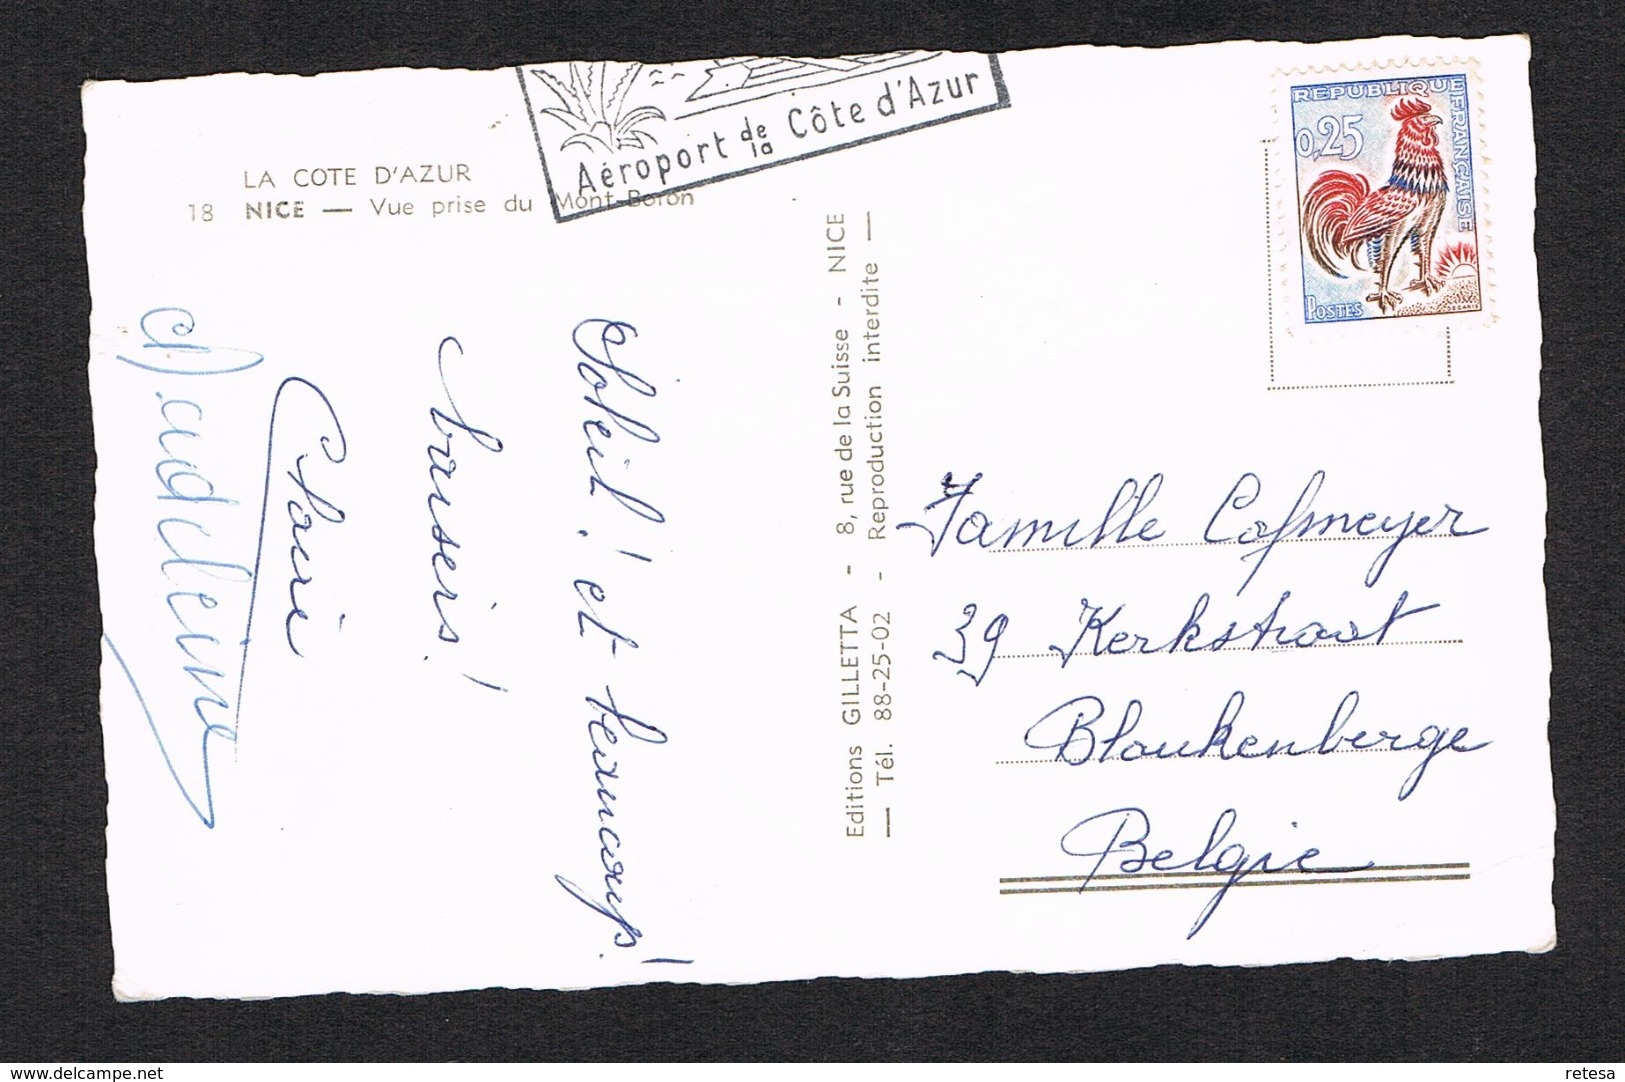 Aéroport de la Côte d'Azur
LA COTE D'AZUR
18 NICE — Vue prise du Mont-Boron
Soleil! et beaucoup!
baisers!
Madeleine
Editions GILLETTA - 8, rue de la Suisse - NICE
— Tél. 88-25-02 - Reproduction interdite —
REPUBLIQUE FRANÇAISE
0,25
POSTES
DECARIS
Famille Cafmeyer
39 Kerkstraat
Blankenberge
Belgie
delcampe.net
retesa